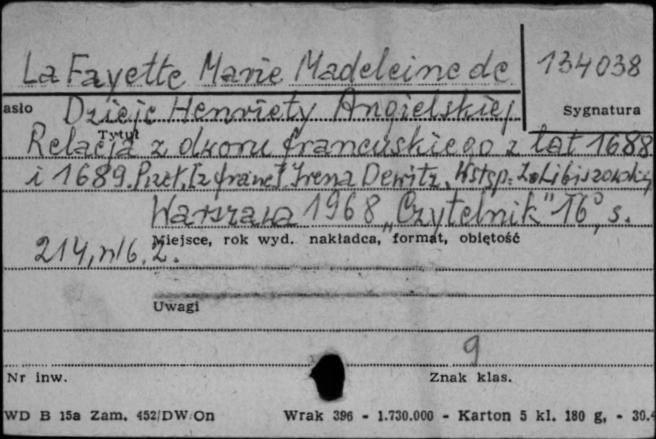 La Fayette Marie Madeleine de
134038
asło
Dzieje Henriety Angielskiej
Sygnatura
Tytuł
Relacja z dworu francuskiego z lat 1688
i 1689. Przeł. [z franc.] Irena Dewitz. Wstęp: Z. Libiszowska
Warszawa 1968 „Czytelnik" 16°, s.
Miejsce, rok wyd. nakładca, format, objętość
214, nlb. 2.
Uwagi
9
Nr inw.
Znak klas.
WD B 15a Zam. 452/DW/On Wrak 396 - 1.730.000 - Karton 5 kl. 180 g. - 30.4